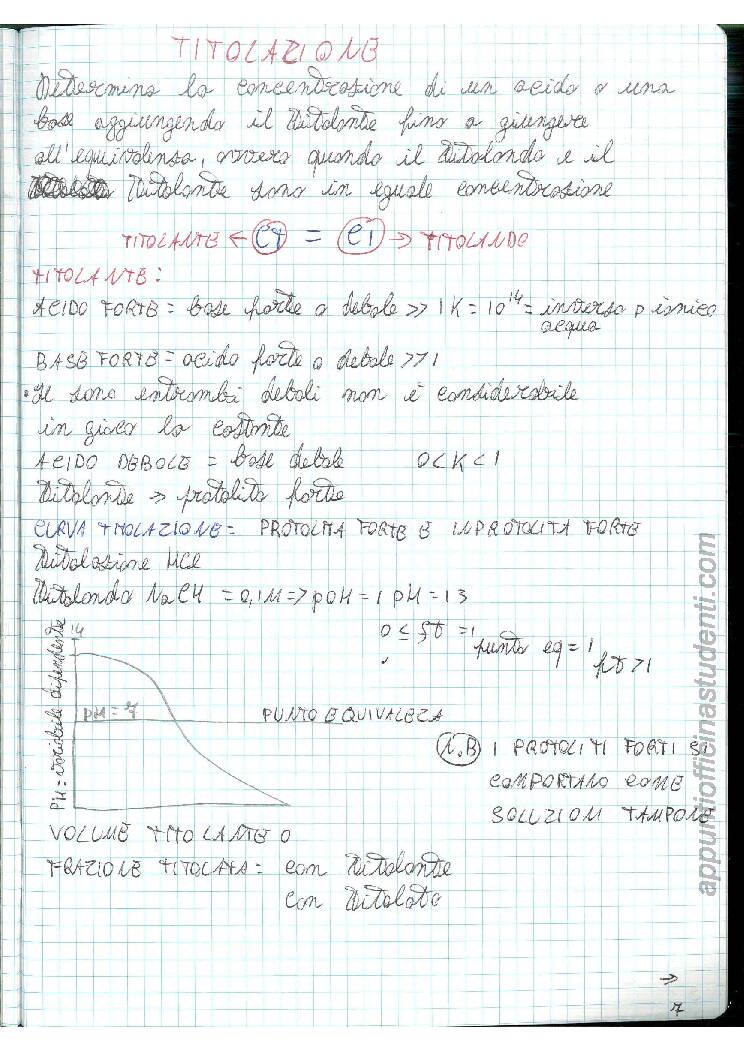 TITOLAZIONE
Determina la concentrazione di un acido o una
base aggiungendo il titolante fino a giungere
all'equivalenza, ovvero quando il titolando e il
titolante sono in eguale concentrazione
TITOLANTE ← CT = CI → TITOLANDO
TITOLANTE:
ACIDO FORTE = base forte o debole >> 1 K = 10¹⁴ = inverso p ionico
acqua
BASE FORTE = acido forte o debole >> 1
• Se sono entrambi deboli non è considerabile
in gioco la costante
ACIDO DEBOLE = base debole 0 < K < 1
Titolante → protolita forte
CURVA TITOLAZIONE = PROTOLITA FORTE E INPROTOLITA FORTE
Titolazione HCl
Titolando NaOH = 0,1M => pOH = 1 pH = 13
0 ≤ ft = 1 punto eq = 1 ft > 1
14
PH = variabile dipendente
PH = 7 PUNTO EQUIVALEZA
N.B I PROTOLITI FORTI SI
COMPORTANO COME
SOLUZIONI TAMPONE
VOLUME TITOLANTE O
FRAZIONE TITOLATA = con titolante
con titolato
→
7
appuntiofficinastudenti.com